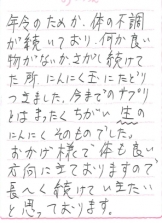 年令のためか、体の不調
が続いており、何か良い
物がないかさがし続けて
た所にんにく玉にたどり
つきました。今までのサプリ
とはまったくちがい生の
にんにくそのものでした。
おかげ様で体も良い
方向に立ておりますので、
長く続けていきたい
と思っております。